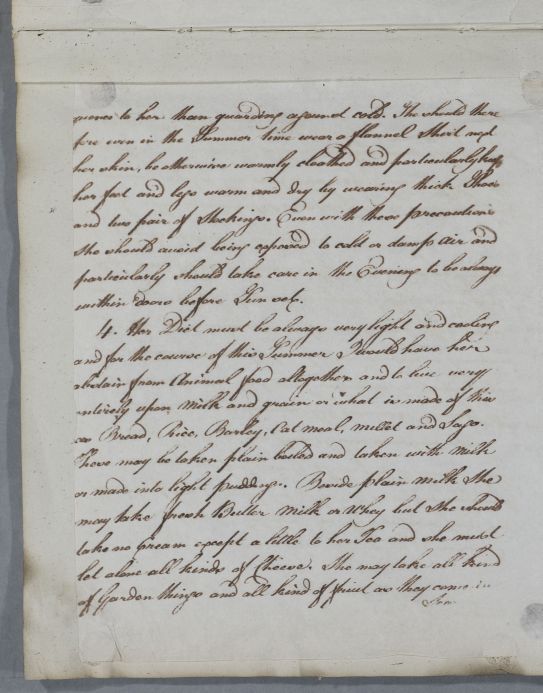 quence to her than guarding against cold. She should there
fore even in the Summer time wear a flannel Shirt next
her skin, be otherwise warmly cloathed and particularly keep
her feet and legs warm and dry by wearing thick Shoes
and two pair of Stockings. Even with these precautions
She should avoid being exposed to cold or damp air and
particularly should take care in the Evening to be always
within doors before Sun set.
4. Her Diet must be always very light and cooling
and for the course of this Summer I would have her
abstain from Animal food altogether and to live very
entirely upon Milk and grain or what is made of this
as Bread, Rice, Barley, Oat meal, millet and Sago.
These may be taken plain boiled and taken with milk
or made into light puddings. Beside plain milk She
may take fresh Butter Milk or Whey but She should
take no cream except a little to her Tea and she must
let alone all kinds of Cheese. She may take all kind
of Garden things and all kind of fruit as they come in